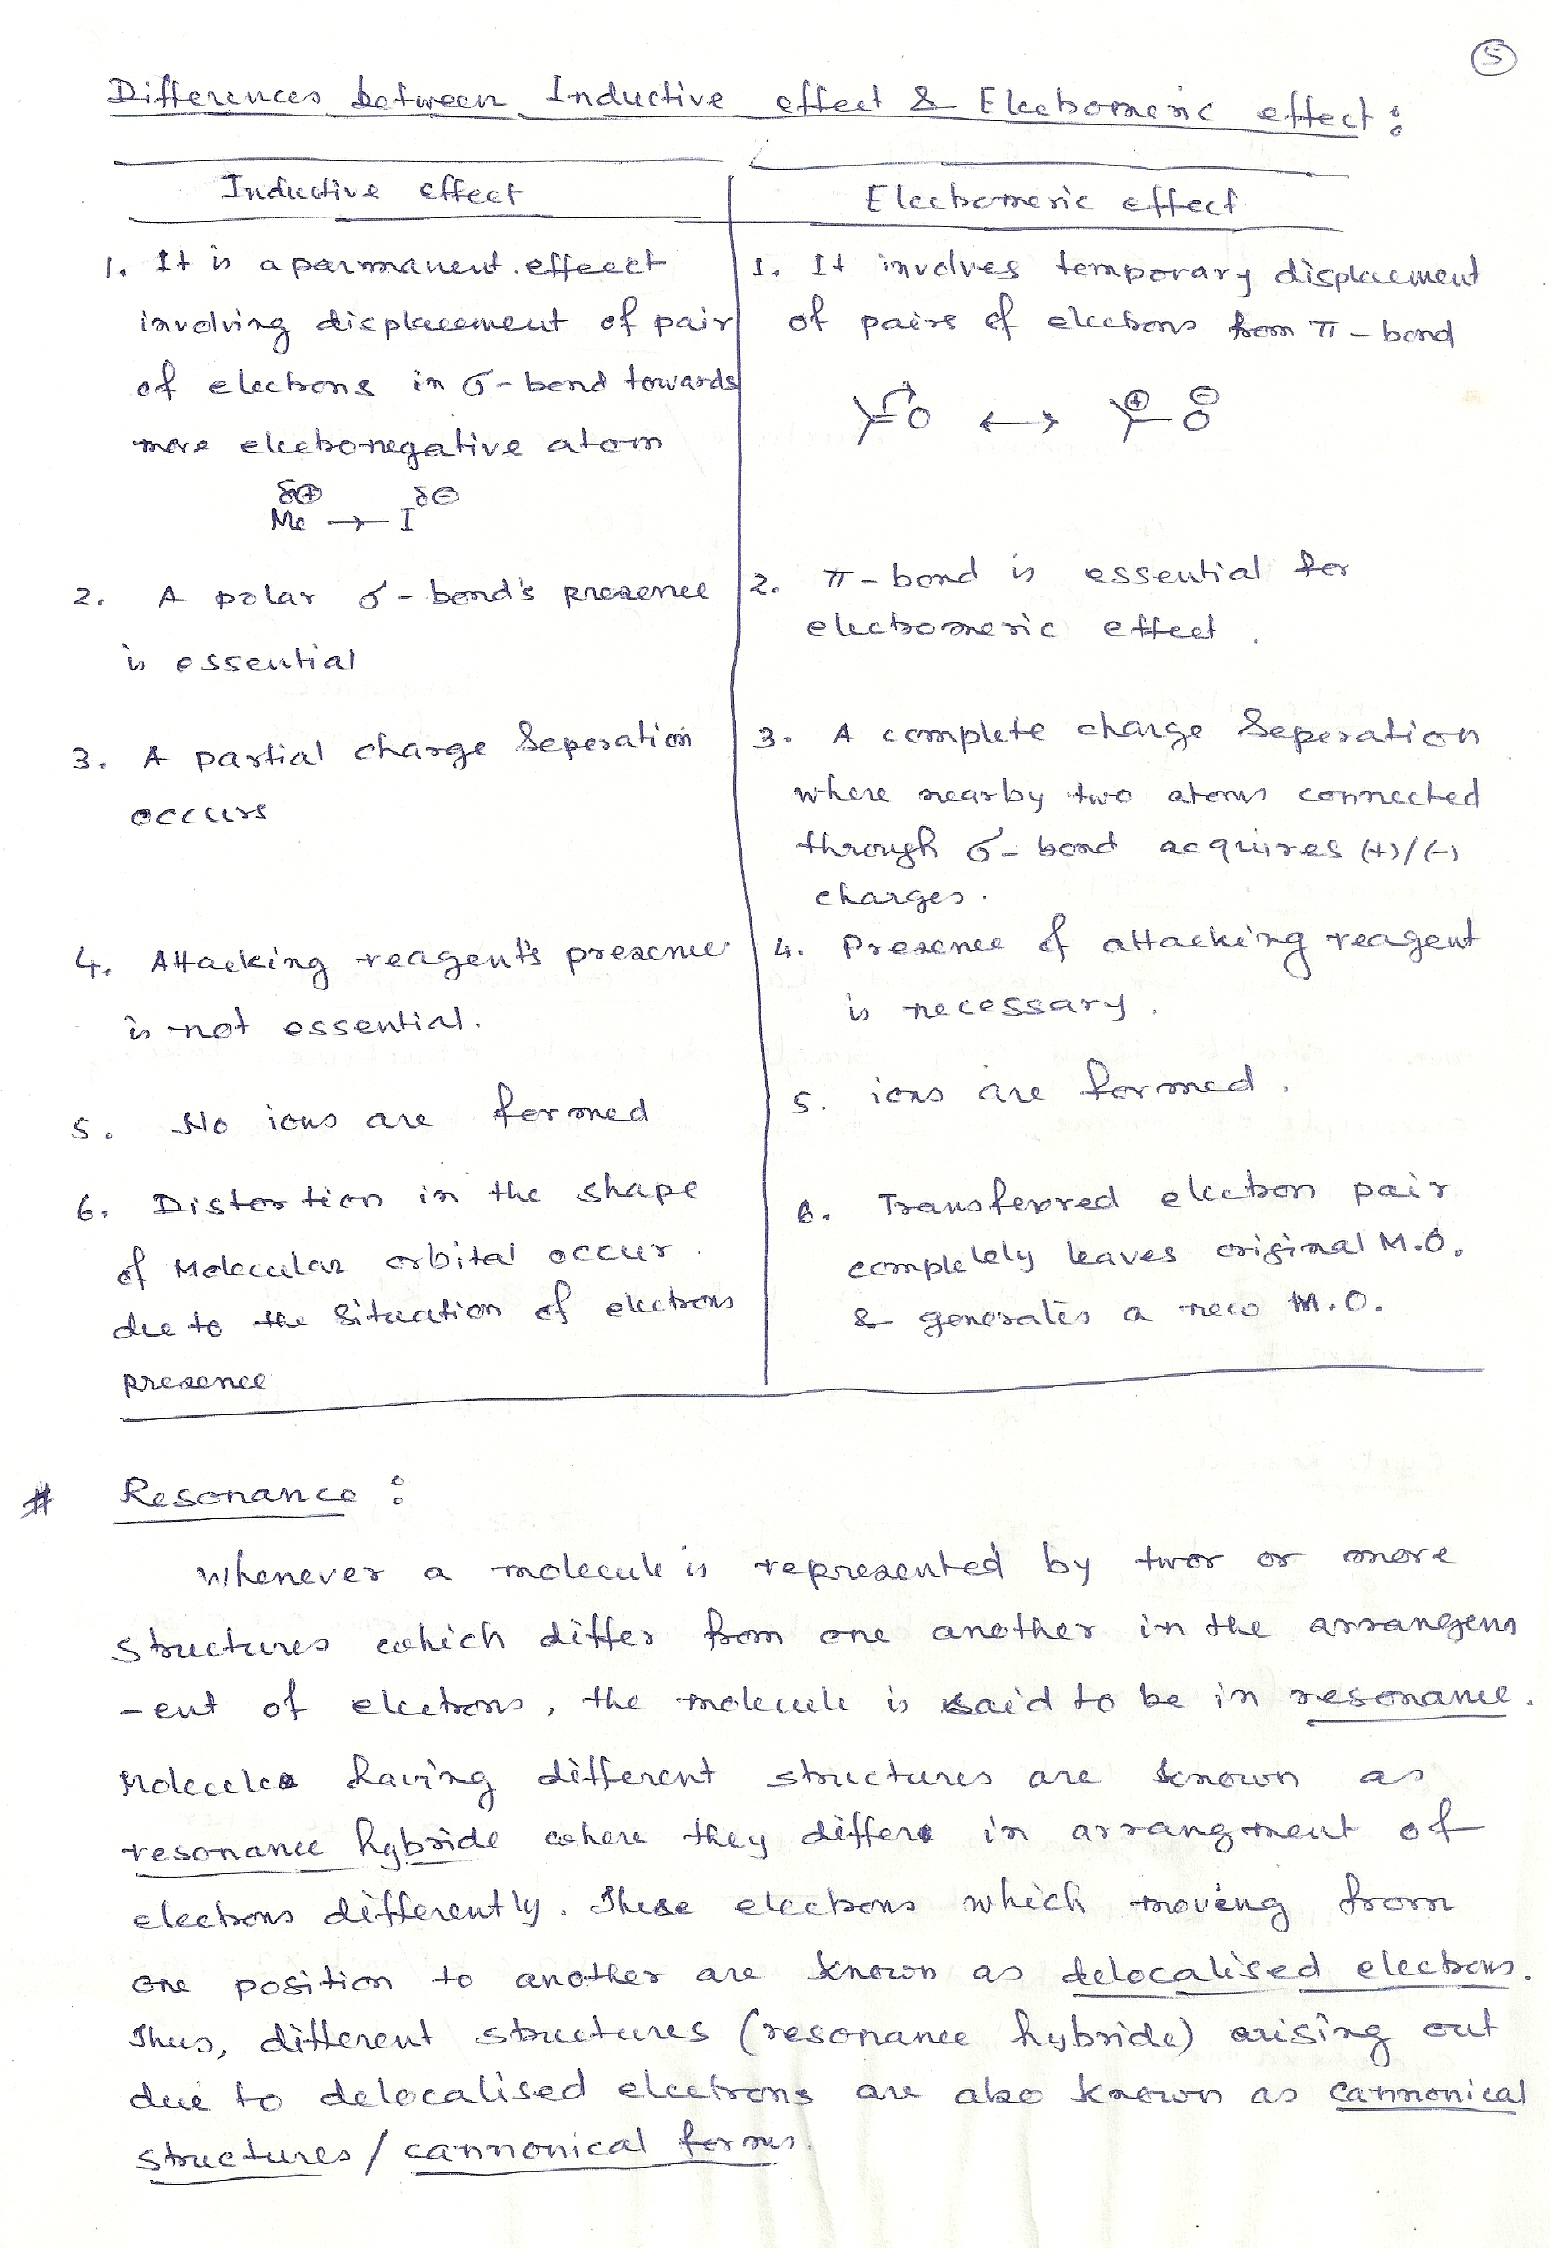 5
Differences between Inductive effect & Electromeric effect :
Inductive effect
1. It is a parmanent. effeect
involving displacement of pair
of electrons in σ-bond towards
more electronegative atom
δ⊕ δ⊖
Me → I
2. A polar σ-bond's presence
is essential
3. A partial charge Seperation
occurs
4. Attacking reagent's presence
is not essential.
5. No ions are formed
6. Distortion in the shape
of Molecular orbital occur.
due to the Situation of electrons
presence
Electromeric effect
1. It involves temporary displacement
of pairs of electrons from π-bond
=O ↔ ⊕ – O ⊖
2. π-bond is essential for
electromeric effect.
3. A complete charge Seperation
where nearby two atoms connected
through σ-bond acquires (+)/(-)
charges.
4. Presence of attacking reagent
is necessary.
5. ions are formed.
6. Transferred electron pair
completely leaves original M.O.
& generates a new M.O.
# Resonance :
Whenever a molecule is represented by twor or more
structures which differ from one another in the arrangem
-ent of electrons, the molecule is said to be in resonance.
Molecules having different structures are known as
resonance hybride where they differs in arrangment of
electrons differently. These electrons which moving from
one position to another are known as delocalised electrons.
Thus, different structures (resonance hybride) arising out
due to delocalised electrons are also known as cannonical
structures / cannonical forms.